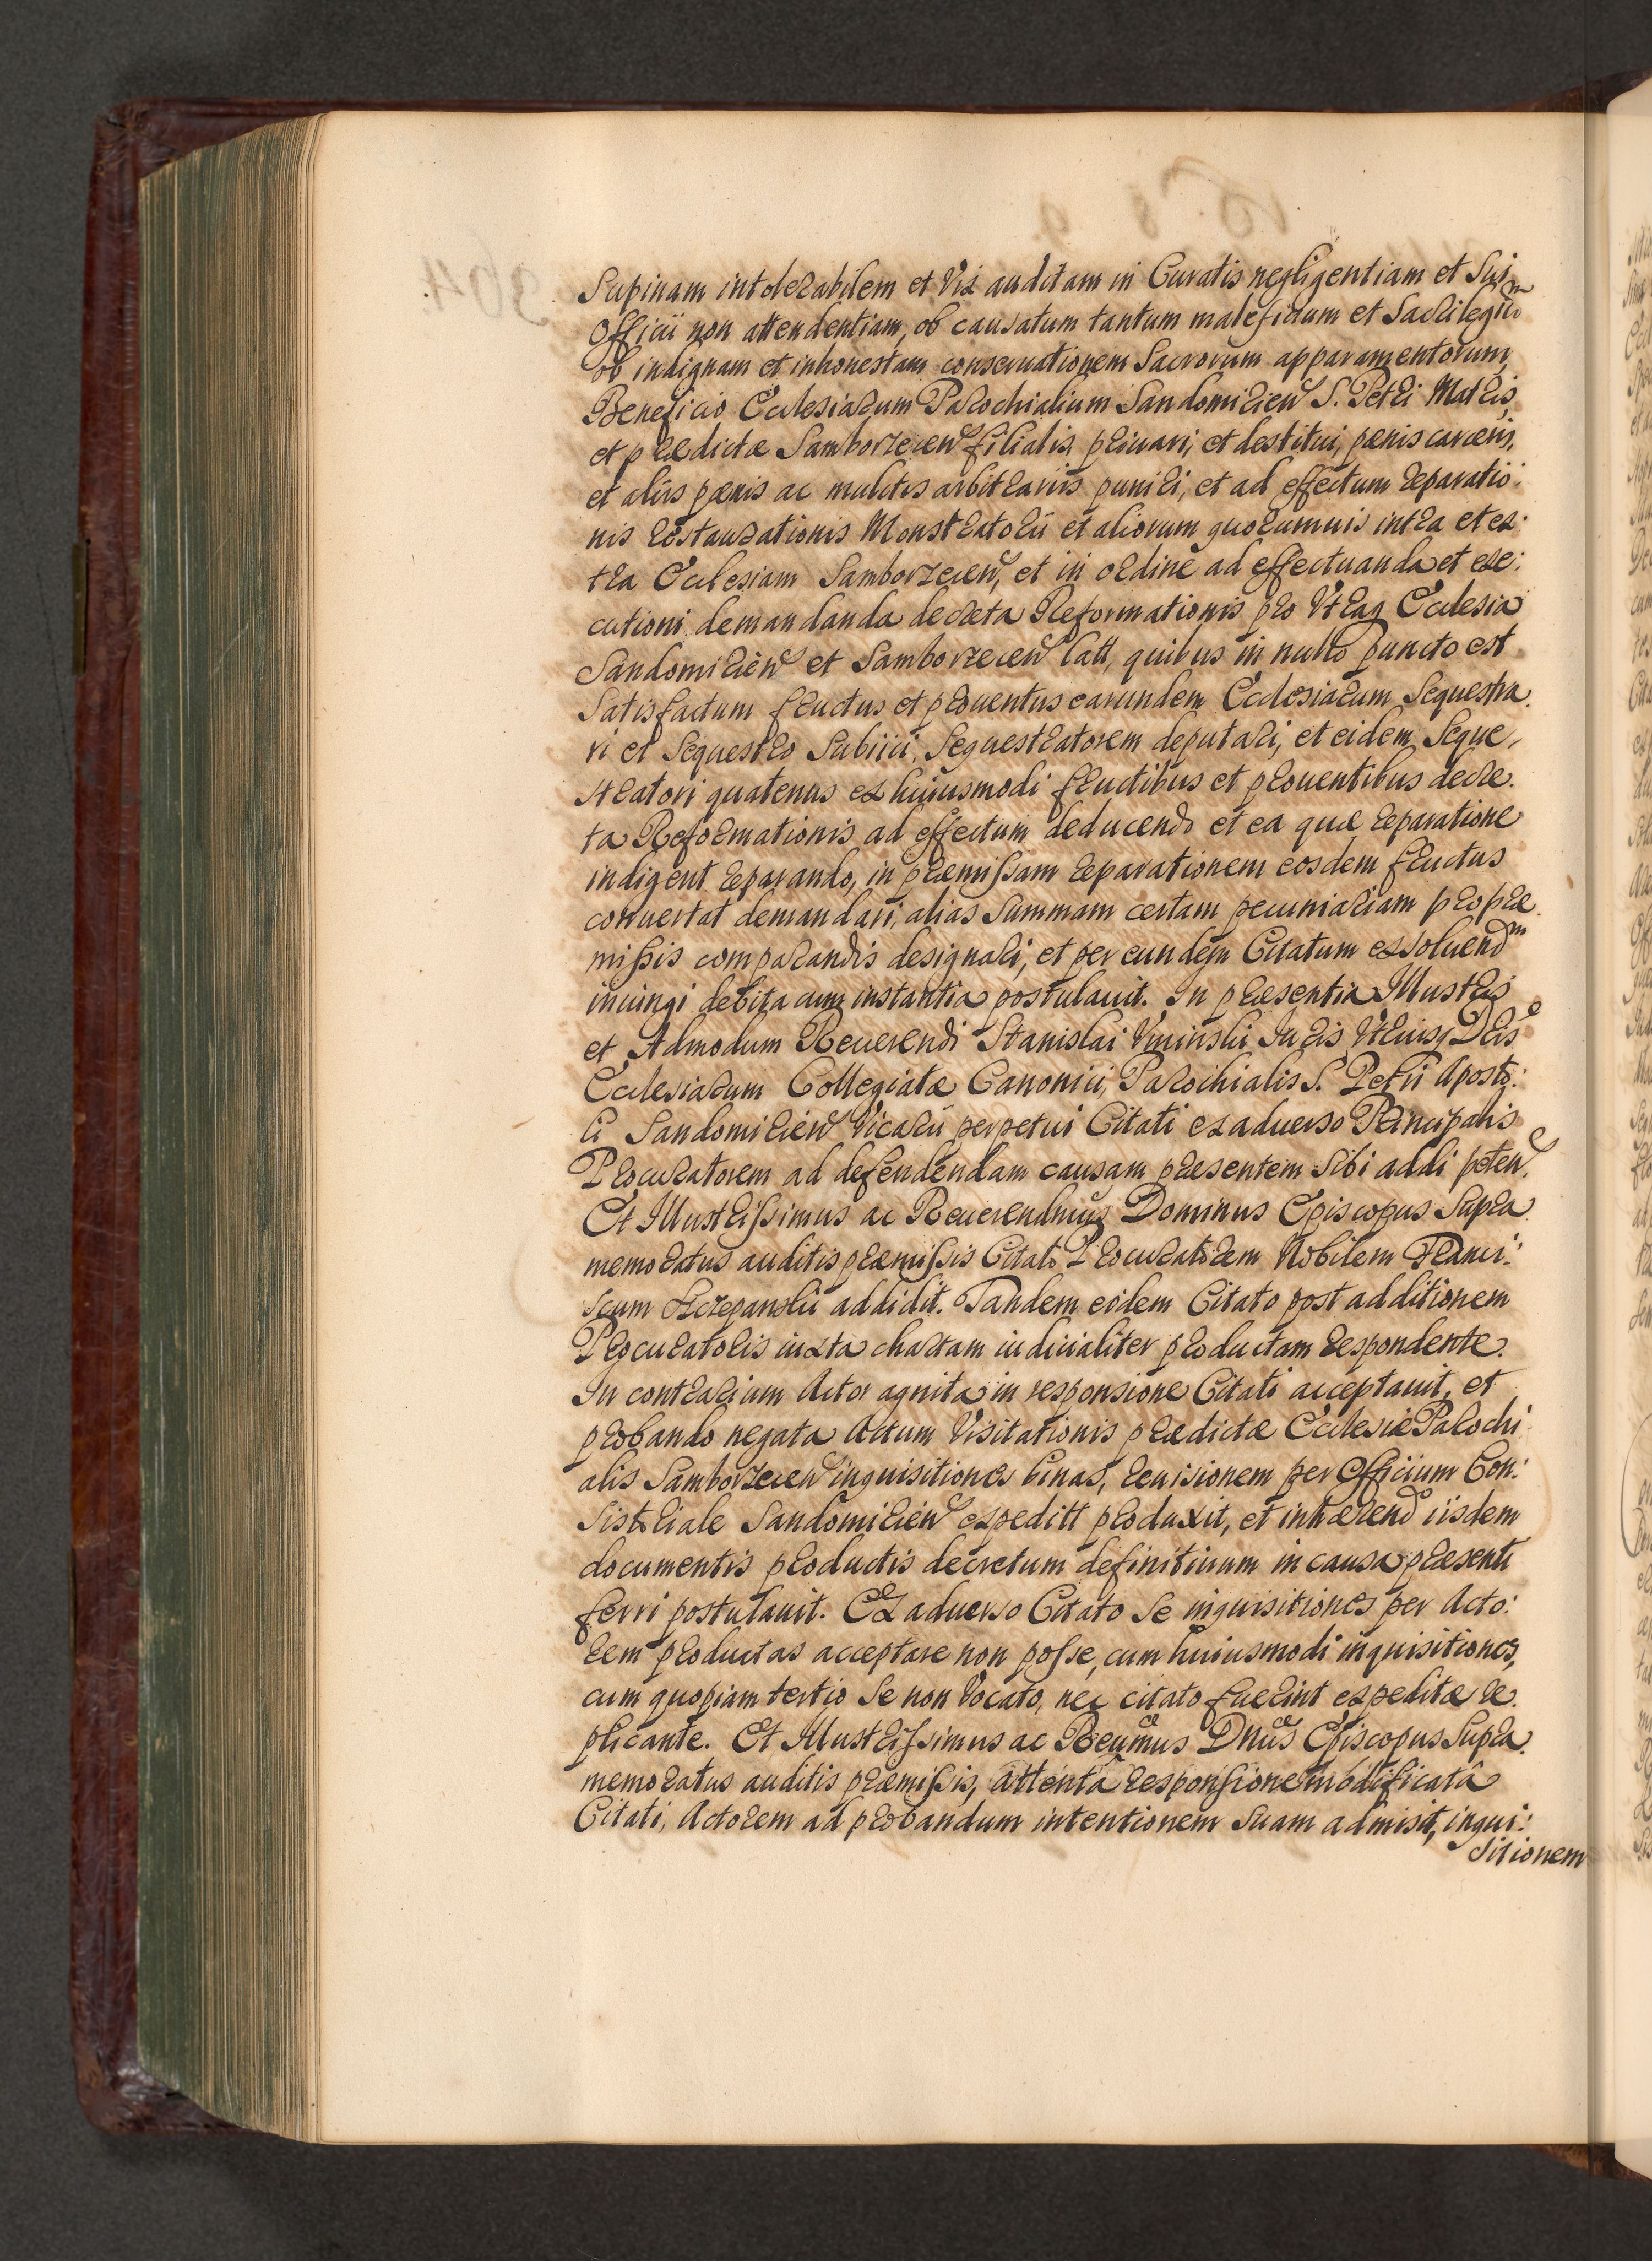 Supinam intolerabilem et Vix auditam in Curatis negligentiam et Sui
Officii non attendentiam, ob causatum tantum maleficium et Sacrilegiũm
ob indignam et inhonestam conseruationem Sacrorum apparamentorum,
Beneficio Ecclesiarum Parochialium Sandomirien S. Petri Matris,
et prædictæ Samborzecen filialis, priuari, et destitui, pœnis carceris,
et aliis pœnis ac mulctis arbitrariis puniri, et ad effectum reparatio:
nis restaurationis Monstratorii et aliorum quorumuis intra et ex:
tra Ecclesiam Samborzecen, et in ordine ad effectuanda et exe:
cutioni demandanda decreta Reformationis pro Vtraq Ecclesia
Sandomirien et Samborzecen latt, quibus in nullo puncto est
Satisfactum fructus et prouentus earundem Ecclesiarum Sequestra.
ri et Sequestro Subiici, Sequestratorem deputari, et eidem Seque,
stratori quatenus ex huiusmodi fructibus et prouentibus decre.
ta Reformationis ad effectum deducendo et ea quæ reparatione
indigent reparando, in præmissam reparationem eosdem fructus
conuertat demandari, alias Summam certam pecuniariam pro præ.
missis comparandis designari, et per eundem Citatum exsoluendm
iniungi debita cum instantia postulauit. In præsentia Illustris
et Admodum Reuerendi Stanislai Vminski Juris Vtriusq Dris
Ecclesiarum Collegiatæ Canonici, Parochialis S. Petri Aposto:
li Sandomirien Vicarii perpetui Citati ex aduerso Principalis
Procuratorem ad defendendam causam præsentem Sibi addi peten.
Et Illustrissimus ac Reuerendmus Dominus Episcopus Supra
memoratus auditis præmissis Citato Procuratorem Nobilem Franci:
scum Szczepanski addidit. Tandem eodem Citato post additionem
Procuratoris iuxta chartam iudicialiter productam respondente.
In contrarium Actor agnita in responsione Citati acceptauit, et
probando negata Actum Visitationis prædictæ Ecclesiæ Parochi
alis Samborzecen inquisitiones binas, reuisionem per Officium Con:
sistoriale Sandomirien expeditt produxit, et inhærend iisdem
documentis productis decretum definitiuum in causa præsenti
ferri postulauit. Ex aduerso Citato Se inquisitiones per Acto:
rem productas acceptare non posse, cum huiusmodi inquisitiones,
cum quopiam tertio Se non Vocato, nec citato fuerint expeditæ re.
plicante. Et Illustrissimus ac Reumus Dnus Episcopus Supra.
memoratus auditis præmissis, attenta responsione modificata
Citati, Actorem ad probandum intentionem Suam admisit, inqui:
sitionem